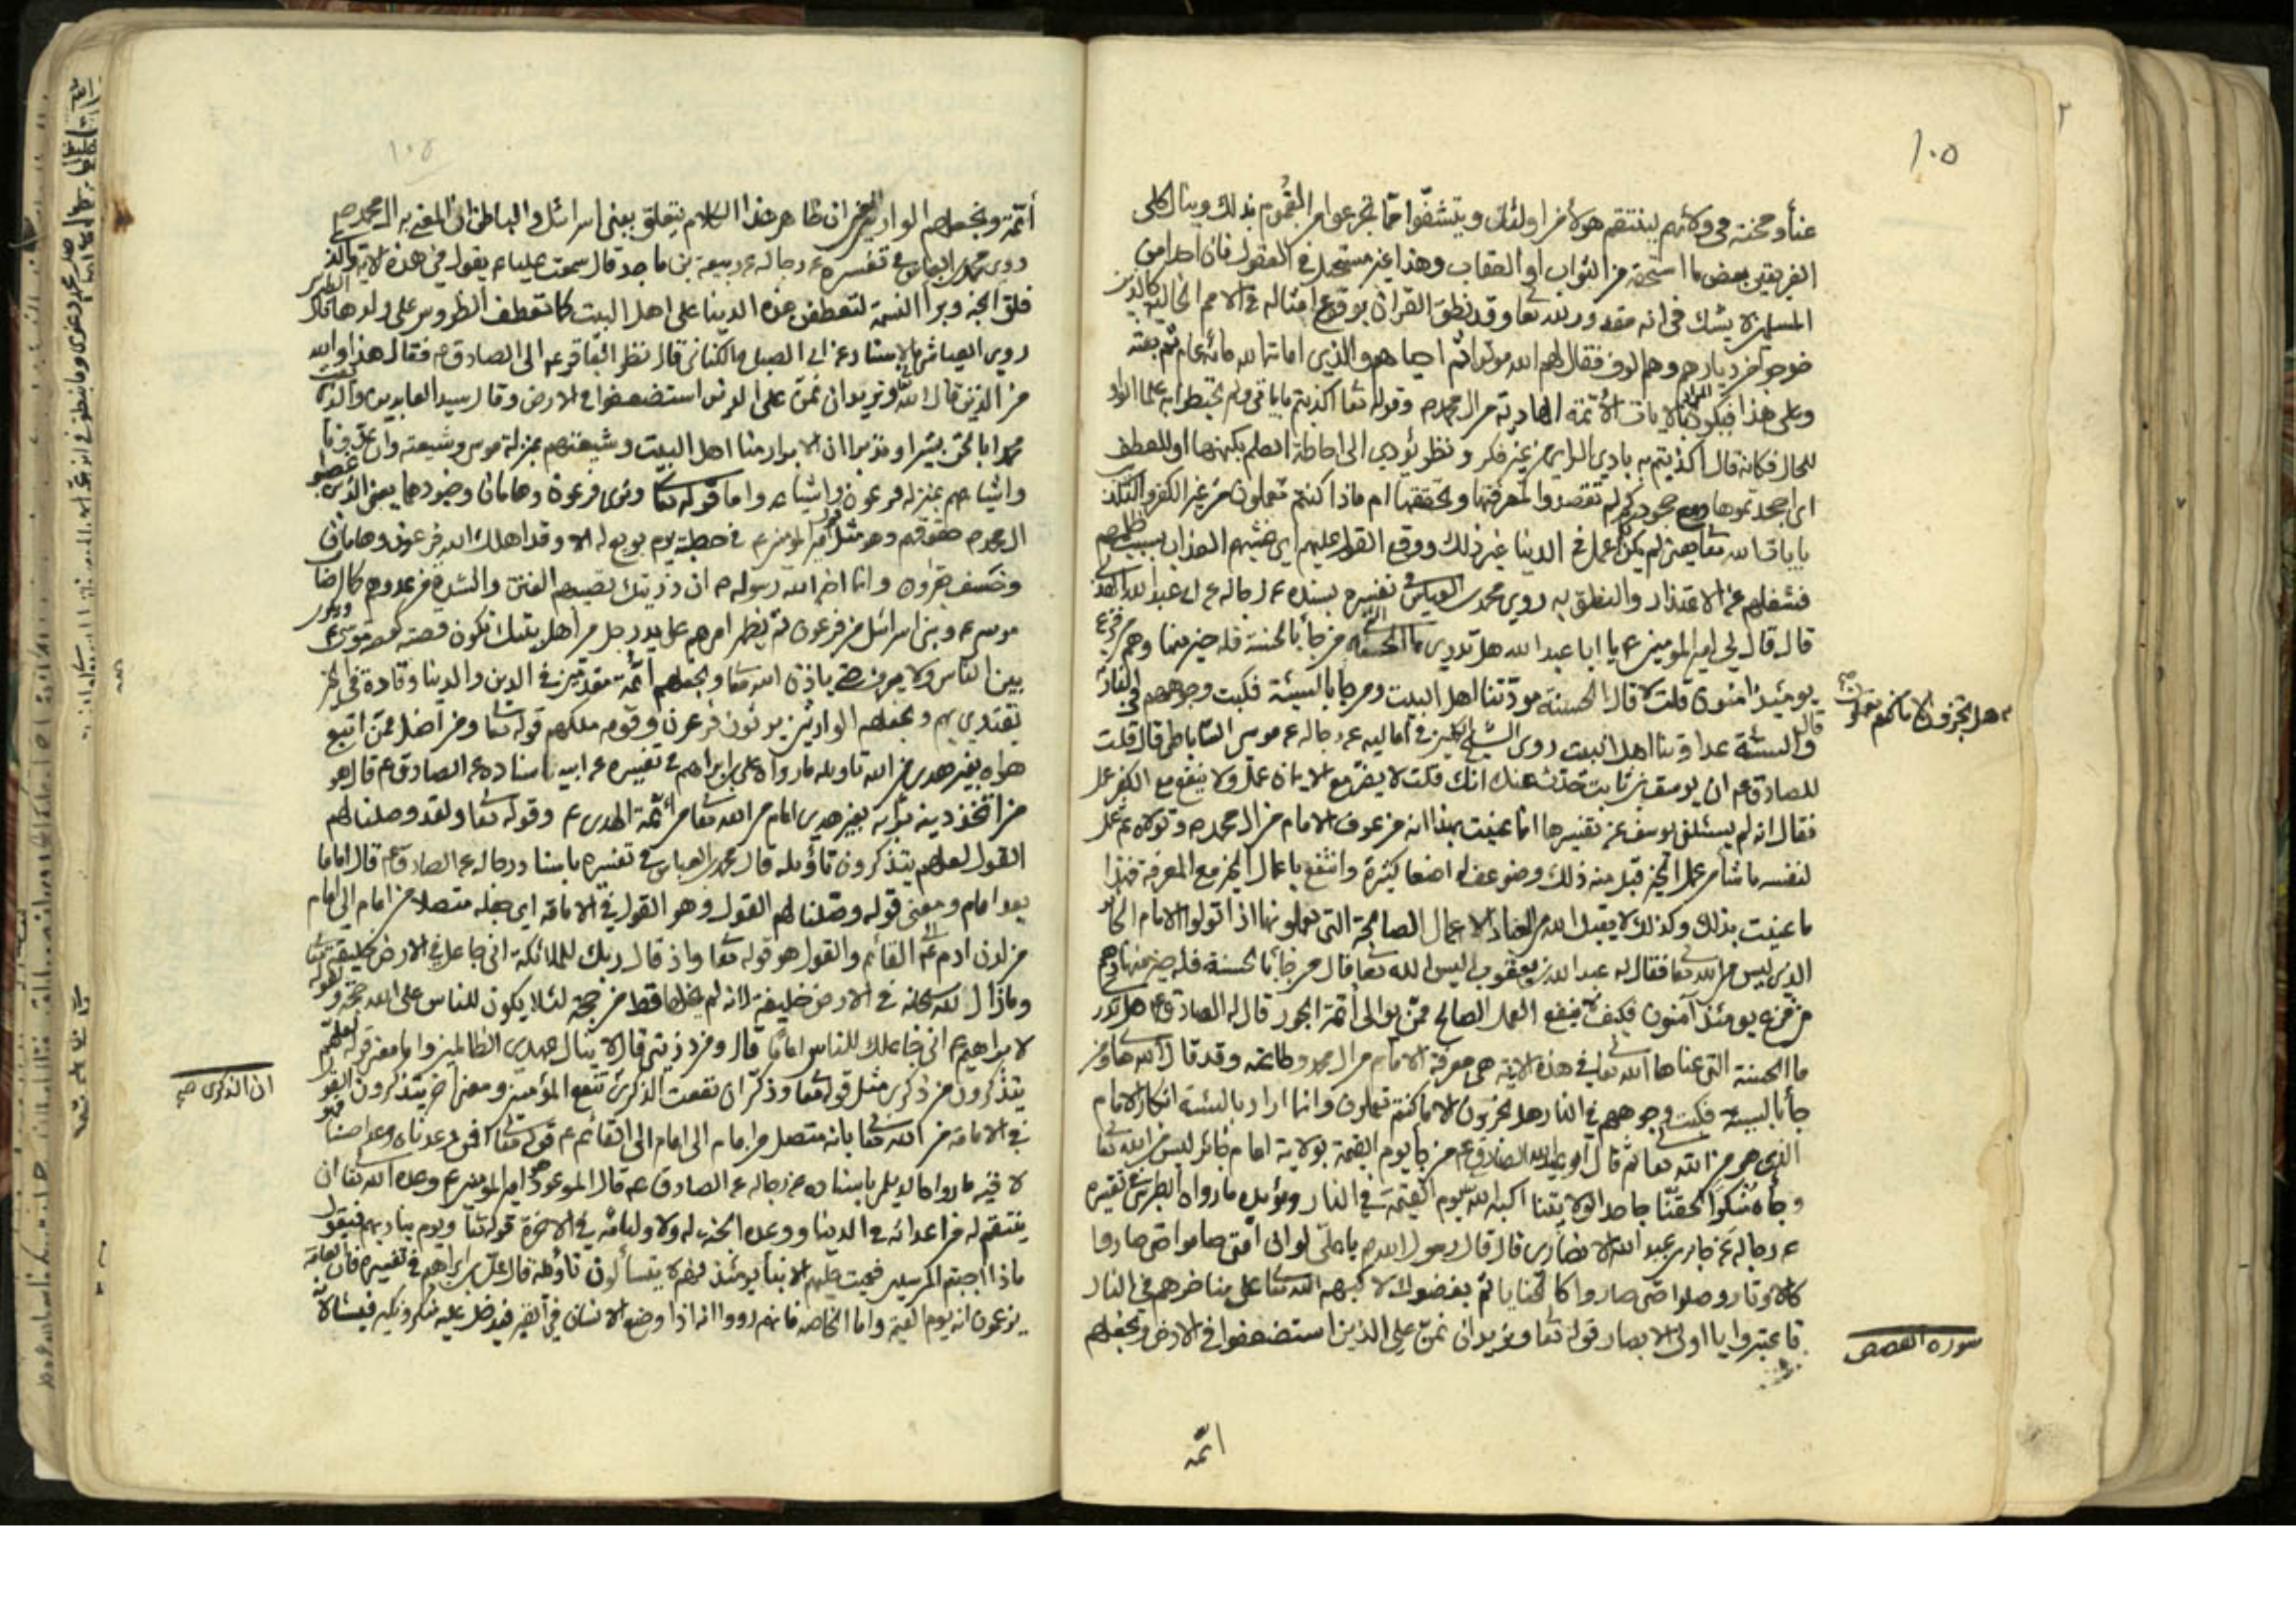 ١٠٥
عناً ومحنة في ولائهم لينتقم هولاء من اولئك ويتشفوا مما تجرعوا من الغموم بذلك وينال كلى
الفريقين بعض ما استحقه من الثواب او العقاب وهذا غير مستحيل في العقول فان احدا من
المسلمين لا يشك في انه مقدور لله تعا وقد نطق القران بوقوع امثاله في الامم الخالية كالذين
خرجوا من ديارهم وهم الوف فقال لهم الله موتوا ثم احياهم والذي اماته الله مائة عام ثم بعثه
وعلى هذا فيكون المراد بالايات الائمة الهادية من ال محمد ص وقوله تعا اكذبتم باياتي ولم تحيطوا بها علما الواو
للحال فكانه قال اكذبتم به بادي الراي من غير فكر ونظر يؤدي الى احاطة العلم بكنهها او للعطف
اى اجحدتموها ومع جحودكم لم تقصدوا لمعرفتها وتحققها ام ماذا كنتم تعملون من غير الكفر والتكذيب
بايات الله تعا يعني لم يكن عمل في الدنيا غير ذلك ووقع القول عليهم اي غشيهم العذاب بسبب ظلمهم
فشغلهم عن الاعتذار والنطق به روى محمد بن العباس في تفسيره بسنده عن رجاله عن ابى عبد الله
قال قال لي امير المومنين ع يا ابا عبد الله هل تدري ما الحسنة التي من جأ بالحسنة فله خير منها وهم من فزع
يومئذ امنون قلت لا قال الحسنة مودتنا اهل البيت ومن جا بالسيئة فكبت وجوههم في النار
هل تجزون الا ما كنتم تعملون صح
قال والسيئة عداوتنا اهل البيت روى الشيخ في اماليه عن رجاله عن موسى الساباطى قال قلت
للصادق ع ان يوسف بن ثابت حدث عنك انك قلت لا يضر مع الايمان عمل ولا ينفع مع الكفر عمل
فقال انه لم يسئلني يوسف عن تفسيرها انما عنيت بهذا انه من عرف الامام من ال محمد ص وتولاه ثم عمل
لنفسه ما شأ من عمل الخير قبل منه ذلك وضوعف له اضعافا كثيرة وانتفع باعمال الخير مع المعرفة فهذا
ما عنيت بذلك وكذلك لا يقبل الله من العباد الاعمال الصالحة التي يعملونها اذا تولوا الامام الجائر
الذي ليس من الله تعا فقال له عبد الله بن يعقوب اليس الله تعا قال من جأ بالحسنة فله خير منها وهم
من فزع يومئذ آمنون فكيف لا ينفع العمل الصالح ممن يوالى ائمة الجور قال له الصادق ع هل تدري
ما الحسنة التي عناها الله تعا في هذه الاية هي معرفة الامام من ال محمد وطاعته وقد قال الله تعا ومن
جأ بالسيئة فكبت وجوههم في النار هل تجزون الا ما كنتم تعملون وانما اراد بالسيئة انكار الامام
الذي هو من الله تعا ثم قال ابو عبد الله الصادق ع من جا يوم القيمة بولاية امام جائر ليس من الله تعا
وجأه منكرا لحقنا جاحدا لولايتنا اكبه الله يوم القيمة في النار ويؤيده ما رواه الطبرسى في تفسيره
عن رجاله عن جابر بن عبد الله الانصارى قال قال رسول الله ص يا على لو ان امتى صاموا حتى صاروا
كالاوتار وصلوا حتى صاروا كالحنايا ثم بغضوك لاكبهم الله تعا على مناخرهم في النار
فاعتبروا يا اولى الابصار قوله تعا ونريد ان نمن على الذين استضعفوا في الارض ونجعلهم
سورة القصص
ائمة
١٠٥
أئمة ونجعلهم الوارثين ان ظاهر هذا الكلام يتعلق ببني اسرائل والباطن ان المعنى به ال محمد ص
روى محمد بن العباس في تفسيره عن رجاله عن ربيعة بن ناجد قال سمعت عليا ع يقول في هذه الاية والذى
فلق الحبة وبرأ النسمة لتعطفن هذه الدنيا على اهل البيت كما تعطف الظروس على ولدها
روى العياشى بالاسناد عن ابى الصباح الكناني قال نظر الباقر ع الى الصادق ع فقال هذا والله
من الذين قال الله ونريد ان نمن على الذين استضعفوا في الارض وقال سيد العابدين والذى بعث
محمدا بالحق بشيرا ونذيرا ان الابرار منا اهل البيت وشيعتهم بمنزلة موسى وشيعته وان عدونا
واشياعهم بمنزلة فرعون واشياعه واما قوله تعا ونرى فرعون وهامان وجنودهما يعني الذين غصبوا
ال محمد ص حقوقهم وهو مثل قول امير المومنين ع في خطبته يوم بويع له الا وقد اهلك الله فرعون وهامان
وخسف بقارون وانما اخبر الله رسوله ص ان ذريتك تصيبهم الفتن والشدة من عدوهم كما اصاب
موسى ع وبنى اسرائل من فرعون ثم يظهر امرهم على يد رجل من اهل بيتك تكون قصته كقصة موسى ع ويكون
بين الناس ولا يعرف حتى ياذن الله تعا ونجعلهم ائمة متقدمين في الدين والدنيا وقادة في الخير
يقتدى بهم ونجعلهم الوارثين يرثون فرعون وقومه ملكهم قوله تعا ومن اضل ممن اتبع
هواه بغير هدى من الله تاويله ما رواه على بن ابراهيم في تفسيره عن ابيه باسناده عن الصادق ع قال هو
من اتخذ دينه برأيه بغير هدى امام من الله تعا من ائمة الهدى ع وقوله تعا ولقد وصلنا لهم
القول لعلهم يتذكرون تأويله قال محمد بن العباس في تفسيره باسناد ورجاله عن الصادق ع قال اماما
بعد امام ومعنى قوله وصلنا لهم القول وهو القول في الامامة اي جعله متصلا من امام الى امام
من لدن ادم ع الى القائم والقول هو قوله تعا واذ قال ربك للملائكة اني جاعل في الارض خليفة
وما زال لله سبحانه في الارض خليفة لانه لم يخلها قط من حجة لئلا يكون للناس على الله حجة وقوله
لابراهيم ع اني جاعلك للناس اماما قال ومن ذريتى قال لا ينال عهدى الظالمين واما معنى قوله لعلهم
يتذكرون من ذكرى مثل قوله تعا وذكر ان نفعت الذكرى تنفع المؤمنين ومعنى اخر يتذكرون القول
ان الذكرى صح
في الامامة من الله تعا بانه متصل من امام الى امام الى القائم ع قوله تعا افمن وعدناه وعدا حسنا فهو
لاقيه ما رواه الديلمى باسناده عن رجاله عن الصادق ع قال الموعود هو امير المومنين ع وعده الله تعا ان
ينتقم له من اعدائه في الدنيا ووعده الجنة له ولاوليائه في الاخرة قوله تعا ويوم يناديهم فيقول
ماذا اجبتم المرسلين فعميت عليهم الانبأ يومئذ فهم لا يتسألون تاويله قال على بن ابراهيم في تفسيره فان العامة
يزعمون انه يوم القيمة واما الخاصة فانهم رووا انه اذا وضع الانسان في القبر فيدخل عليه منكر ونكير فيسئلانه